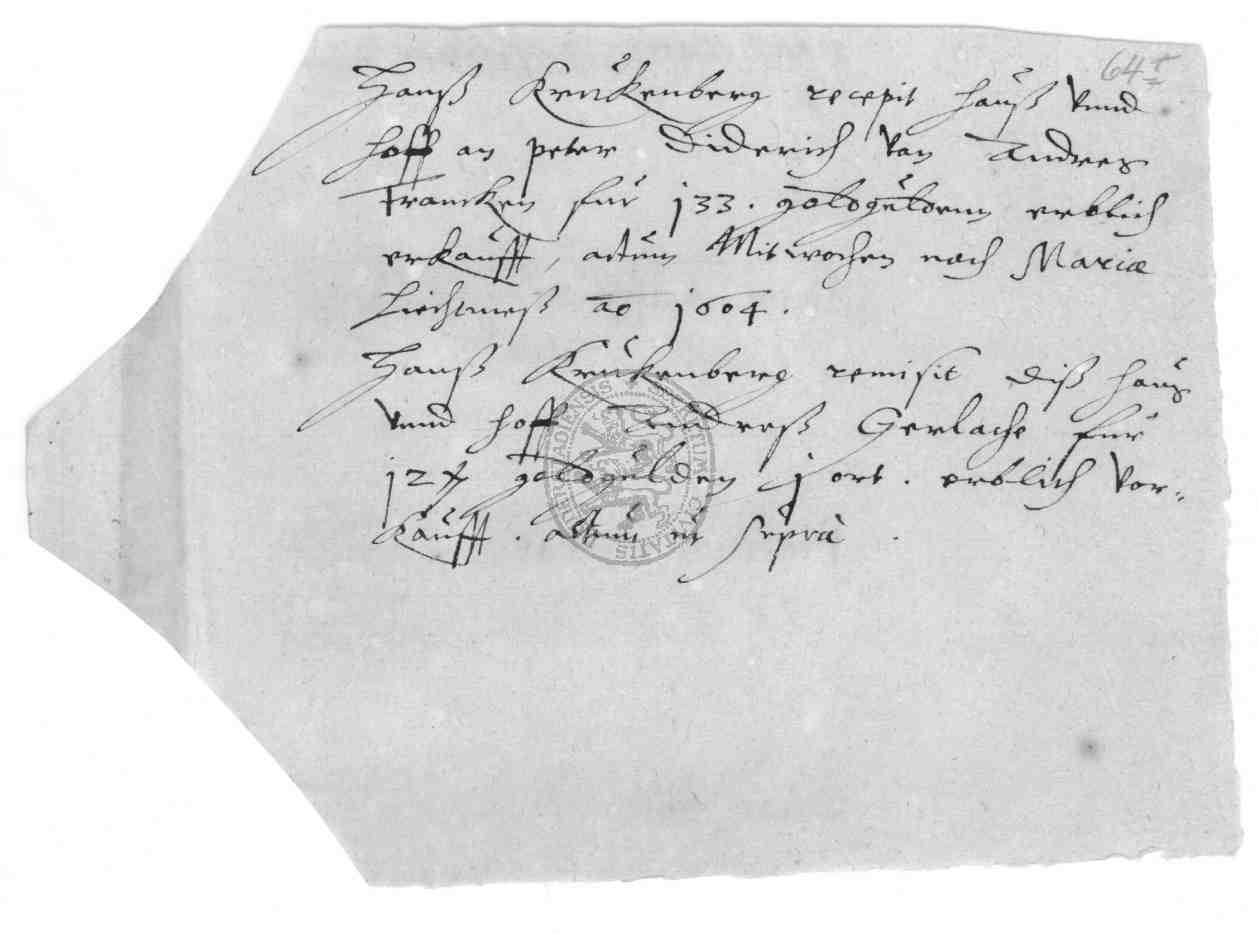 64r
Hanß Krukenberg recepit hauß vnnd
hoff an peter Diderich von Andres
Francken für 133. goldguldenn erblich
erkaufft, actum Mitwochen nach Mariæ
Liechtmeß ao 1604.
Hanß Krukenberg remisit diß haus
vnnd hoff Andreß Gerlache für
124 goldgulden j ort. erblich vor-
kaufft. actum ut supra.
SIGILLUM CIVITATIS